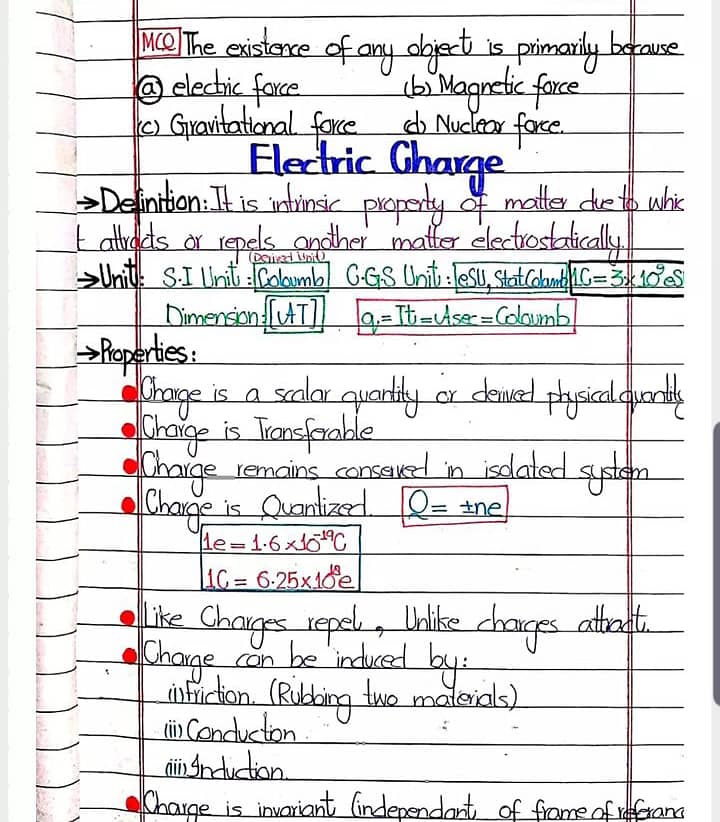 MCQ The existence of any object is primarily because
(a) electric force (b) Magnetic force
(c) Gravitational force (d) Nuclear force.
Electric Charge
→Definition: It is intrinsic property of matter due to whic
t attracts or repels another matter electrostatically.
(Derived Unit)
→Unit: S.I Unit: Coloumb C.G.S Unit: esu, StatColumb 1C=3×10⁹eS
Dimension: [AT] q=It=Asec=Coloumb
→Properties:
● Charge is a scalar quantity or derived physical quantity
● Charge is Transferable
● Charge remains conserved in isolated system
● Charge is Quantized. Q= ±ne
1e=1.6×10⁻¹⁹C
1C= 6.25×10¹⁸e
● Like Charges repel, Unlike charges attract.
● Charge can be induced by:
(i) friction. (Rubbing two materials)
(ii) Conduction
(iii) Induction.
● Charge is invariant (independant of frame of referanc